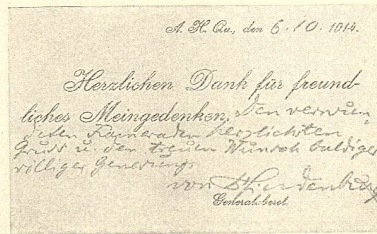 A. H. Qu., den 6.10.1914.
Herzlichen Dank für freund-
liches Meingedenken, den verwun-
deten Kameraden herzlichsten
Gruss u. den treuen Wunsch baldiger
völliger Genesung.
von Hindenburg
Generaloberst.